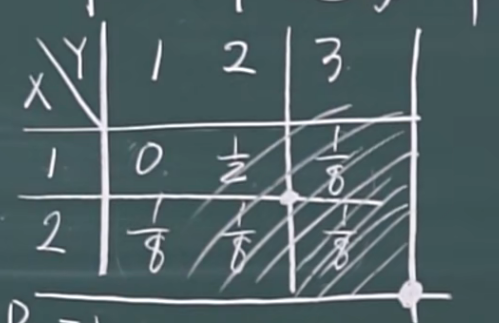 Y 1 2 3
X
1 0 1/2 1/8
2 1/8 1/8 1/8